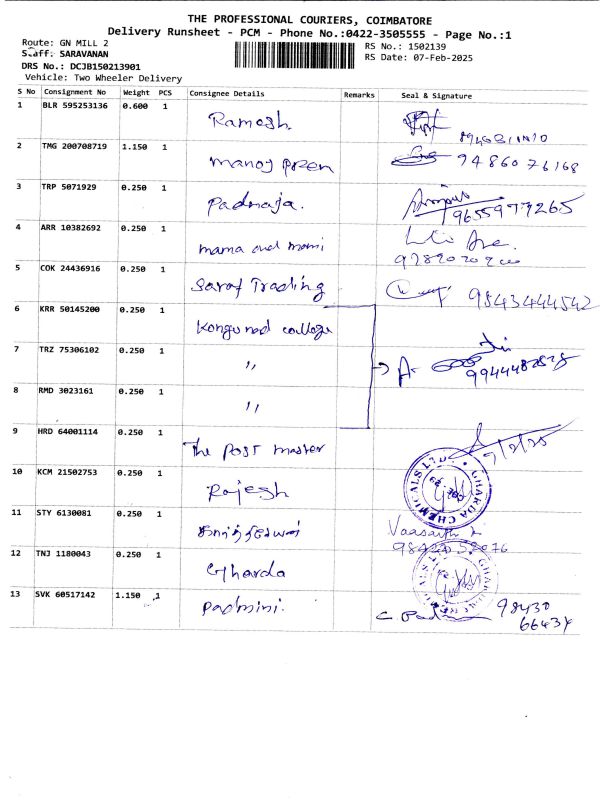 THE PROFESSIONAL COURIERS, COIMBATORE
Delivery Runsheet - PCM - Phone No.:0422-3505555 - Page No.:1
Route: GN MILL 2
RS No.: 1502139
Staff: SARAVANAN
RS Date: 07-Feb-2025
DRS No.: DCJB150213901
Vehicle: Two Wheeler Delivery
S No Consignment No Weight PCS Consignee Details Remarks Seal & Signature
1 BLR 595253136 0.600 1 Ramesh.
2 TMG 200708719 1.150 1 manoj pren 94860 76168
3 TRP 5071929 0.250 1 Padmaja. 9655977265
4 ARR 10382692 0.250 1 mama and momi
5 COK 24436916 0.250 1 Saraf Trading 9843444542
6 KRR 50145200 0.250 1 Kongunad college
7 TRZ 75306102 0.250 1 ,,
8 RMD 3023161 0.250 1 ,,
9 HRD 64001114 0.250 1 The post master 7/2/25
10 KCM 21502753 0.250 1 Rajesh GHARDA CHEMICALS LTD
11 STY 6130081 0.250 1
12 TNJ 1180043 0.250 1 Gharda
13 SVK 60517142 1.150 1 Padmini. 98430
66434